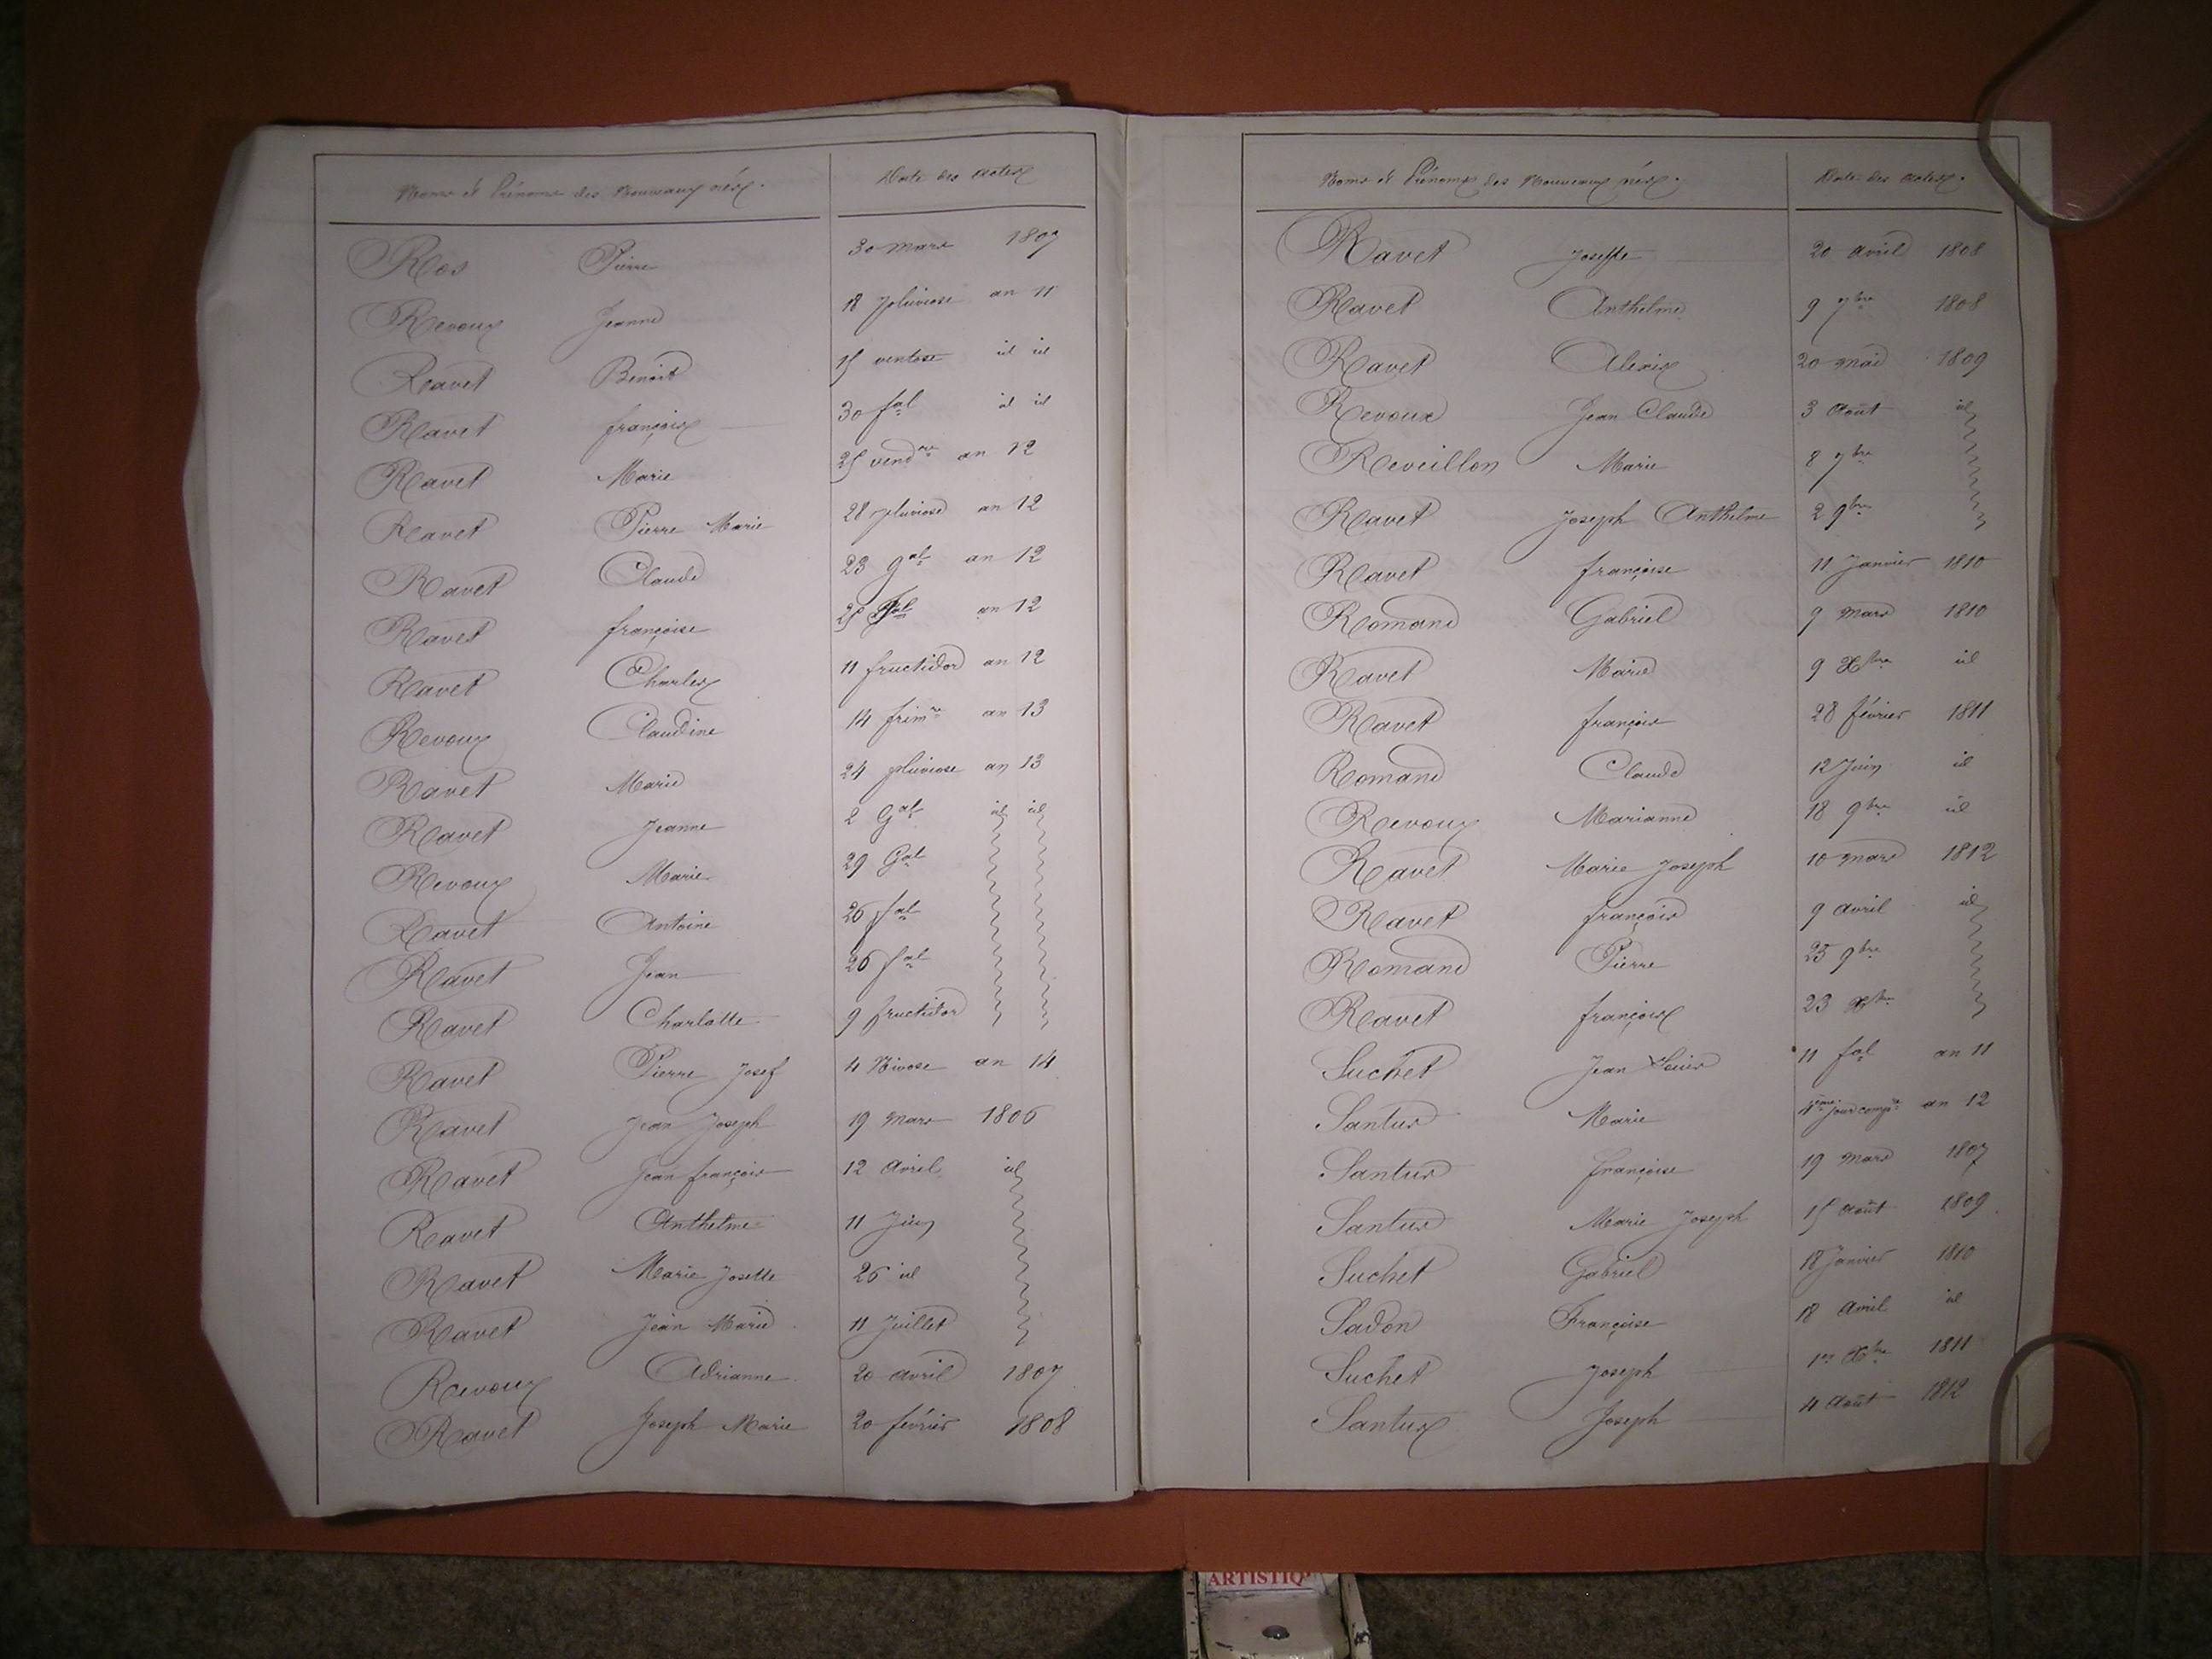 Noms et Prénoms des Nouveaux nés. Date des actes
Ros Pierre 30 mars 1807
Revoux Jeanne 18 pluviose an 11
Ravet Benoit 15 ventose id id
Ravet françois 30 fal id id
Ravet Marie 25 vendre an 12
Ravet Pierre Marie 28 pluviose an 12
Ravet Claude 23 gal an 12
Ravet françoise 25 an 12
Ravet Charles 11 fructidor an 12
Revoux Claudine 14 frimre an 13
Ravet Marie 24 pluviose an 13
Ravet Jeanne 2 Gal id id
Revoux Marie 29 Gal
Ravet Antoine 26 fal
Ravet Jean 26 fal
Ravet Charlotte 9 fructidor
Ravet Pierre Josef 4 Nivose an 14
Ravet Jean Joseph 19 Mars 1806
Ravet Jean françois 12 Avril id
Ravet Anthelme 11 Juin
Ravet Marie Josette 26 id
Ravet Jean Marie 11 Juillet
Revoux Adrianne 20 avril 1807
Ravet Joseph Marie 20 février 1808
Noms et Prénoms des Nouveaux nés. Date des actes.
Ravet Josette 20 avril 1808
Ravet Anthelme 9 7bre 1808
Ravet Alexis 20 mai 1809
Revoux Jean Claude 3 Aout id
Reveillon Marie 8 7bre
Ravet Joseph Anthelme 2 9bre
Ravet françoise 11 Janvier 1810
Romand Gabriel 9 Mars 1810
Ravet Marie 9 Xbre id
Ravet françois 28 février 1811
Romand Claude 12 Juin id
Revoux Marianne 18 9bre id
Ravet Marie Joseph 10 mars 1812
Ravet françois 9 avril id
Romand Pierre 25 9bre
Ravet françois 23 Xbre
Suchet Jean Louis 11 fal an 11
Santus Marie 4eme jour compre an 12
Santus françoise 19 Mars 1807
Santus Marie Joseph 15 Août 1809
Suchet Gabriel 18 Janvier 1810
Sadon Françoise 18 Avril id
Suchet Joseph 1er Xbre 1811
Santus Joseph 4 Août 1812
ARTISTIQ